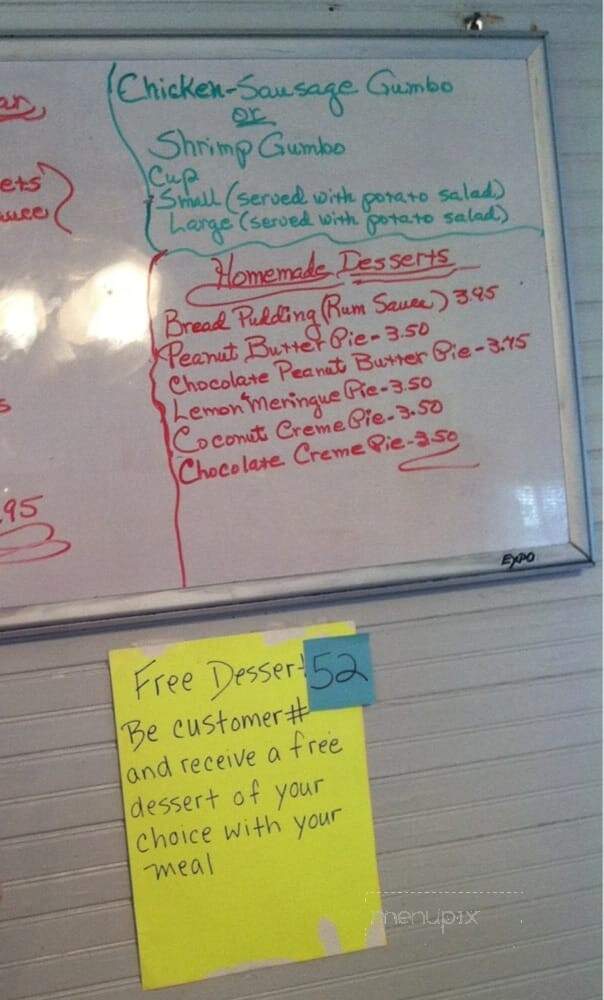 Chicken-Sausage Gumbo
or
Shrimp Gumbo
Cup
Small (served with potato salad)
Large (served with potato salad)
Homemade Desserts
Bread Pudding (Rum Sauce) 3.95
Peanut Butter Pie - 3.50
Chocolate Peanut Butter Pie - 3.75
Lemon Meringue Pie - 3.50
Coconut Creme Pie - 3.50
Chocolate Creme Pie - 3.50
.95
EXPO
Free Dessert
52
Be customer #
and receive a free
dessert of your
choice with your
meal
menupix